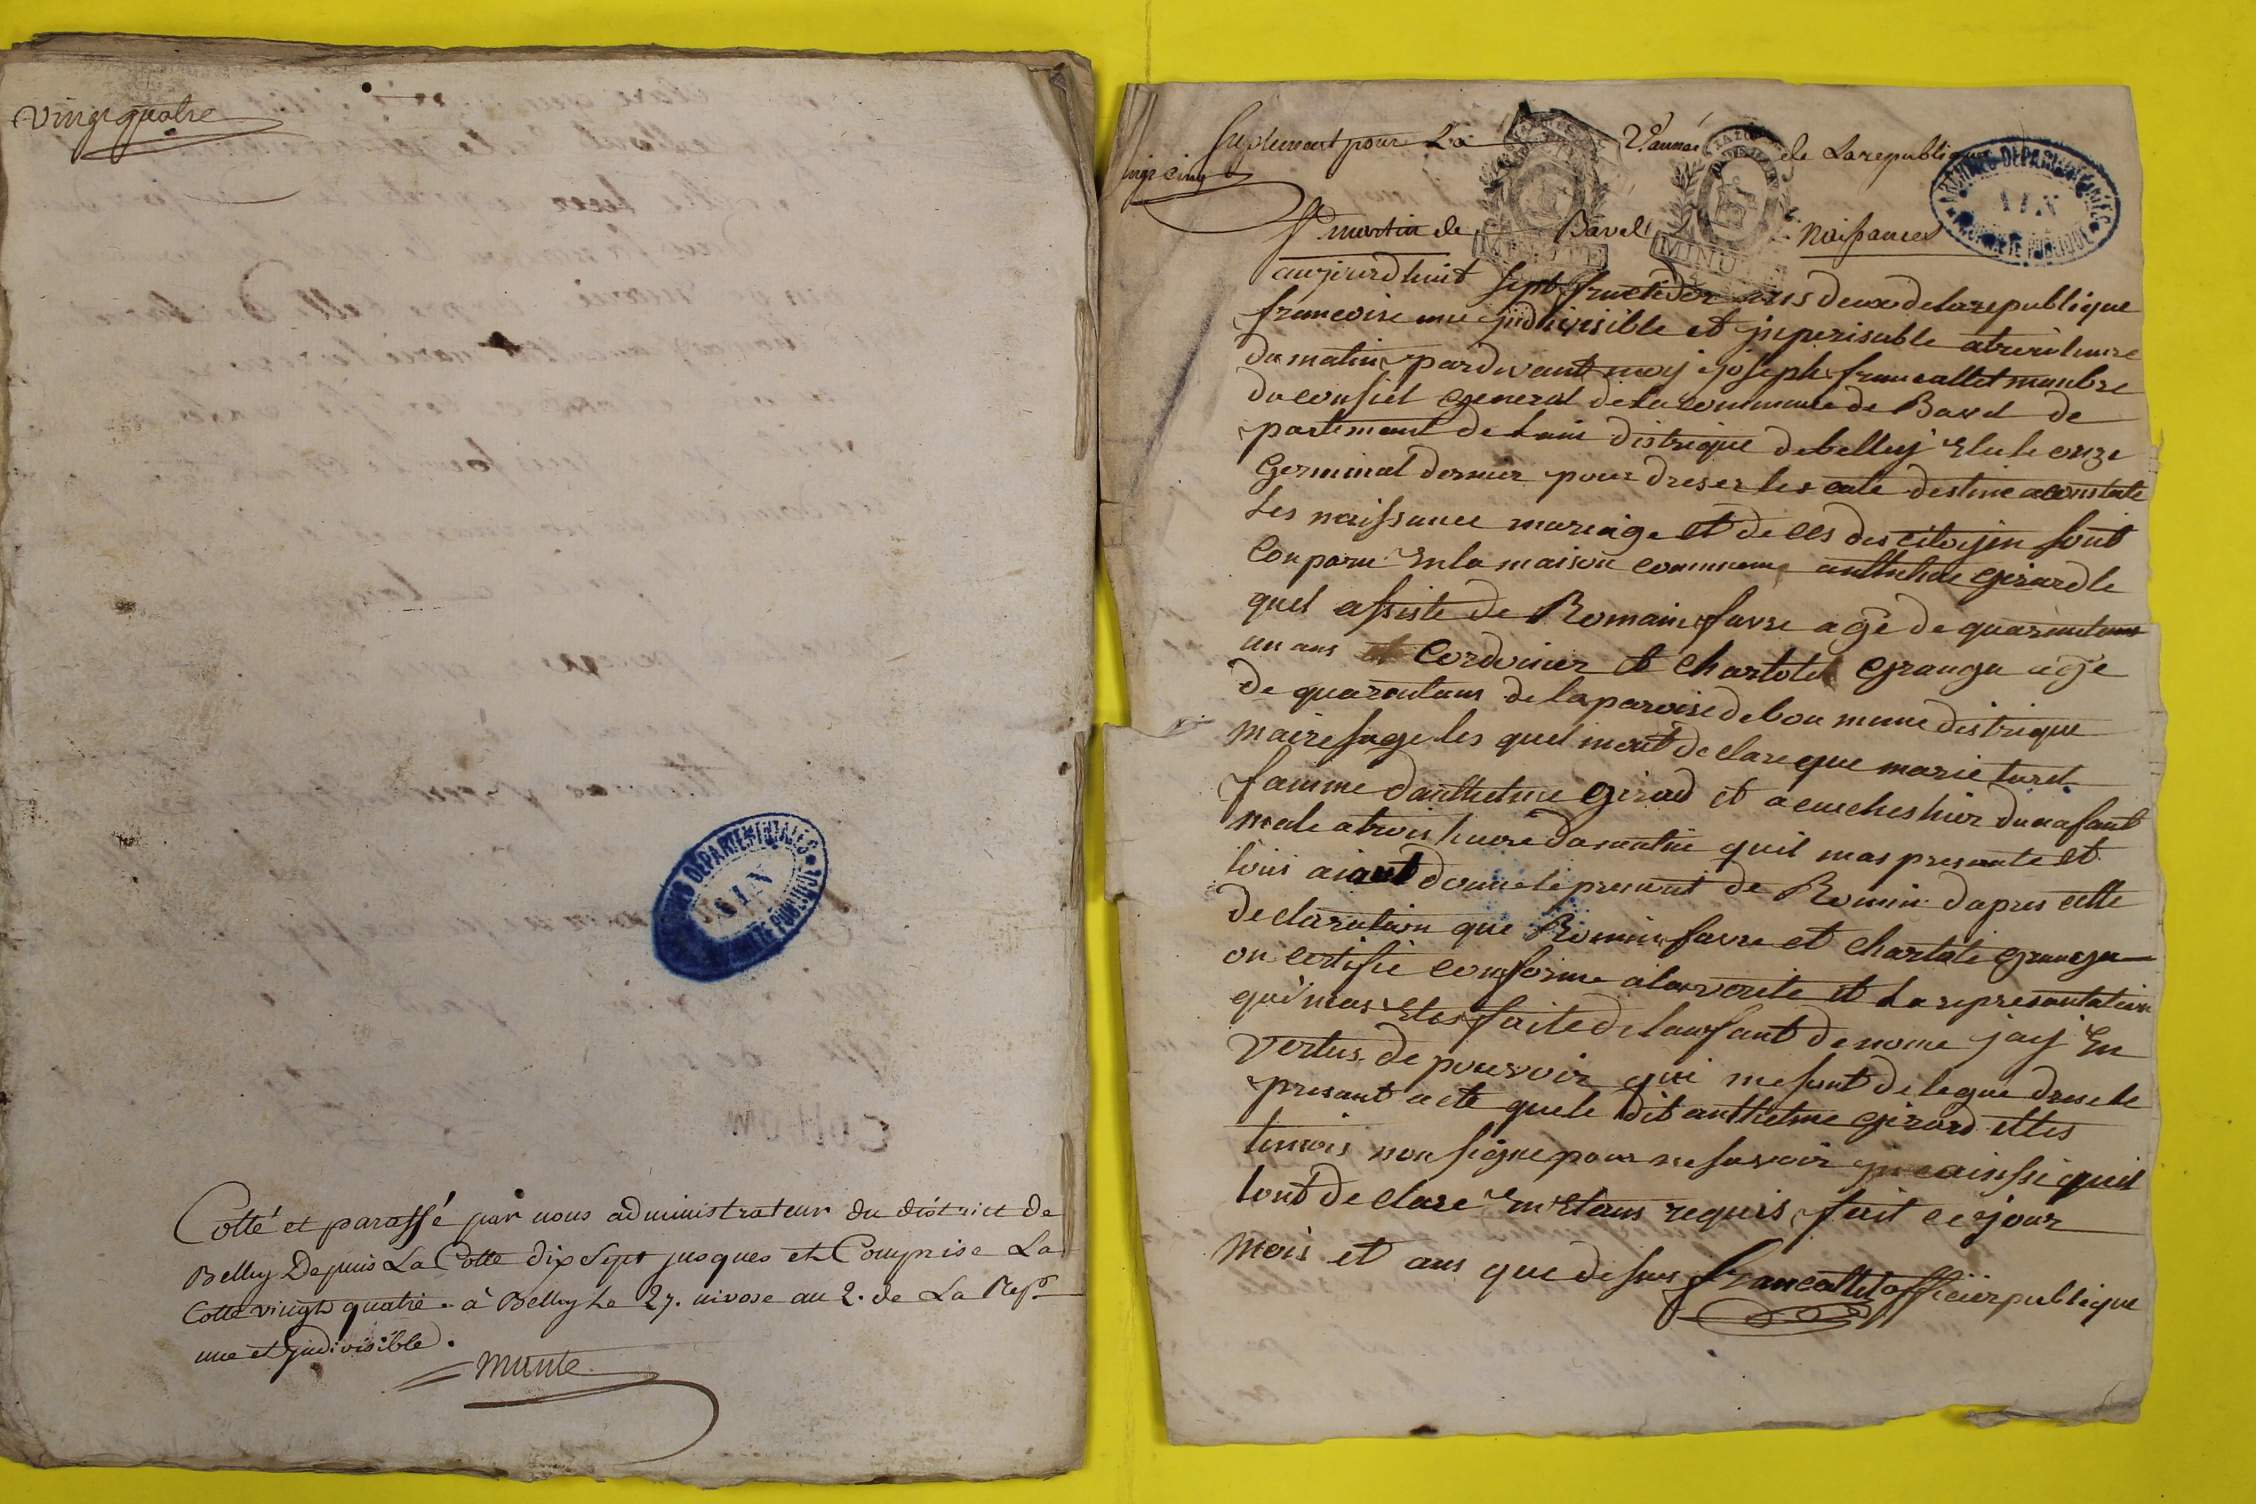 vingt quatre
ARCHIVES DEPARTEMENTALES
AIN
PROPRIETE PUBLIQUE
Cotté et paraffé par nous administrateur du district de
Belley Depuis La Cotte dix sept jusques et Comprise La
Cotte vingt quatre. à Belley Le 27. nivose an 2. de La Rep.
une et indivisible.
Suplement pour La 2e année de La republique
vingt cinq
ARCHIVES DEPARTEMENTALES
AIN
PROPRIETE PUBLIQUE
St martin de Bavel Naissances
MINUTE
MINUTE
aujourdhuit sept fructidor ans deux de la republique
francoise une jndivisible et jnperisable a trois heure
du matin par devant moy joseph francallet manbre
du consiel general de la commune de Bavel de
partement de Lain distrique de belley Elu le onze
Germinal dernier pour dreser les eate destine a constate
Les naissance mariage et deces des citoyin sont
Conparu En la maison commune anthelme girard le
quel assiste de Romain favre agé de quarante
un ans Cordonier et Chartote granga agé
de quarantans de la paroise de bon meme distrique
maire sage les quel mont declare que marie turel
famme danthelme girard et acuches hier dun afant
male a trois huore du matin quil mas presante et
luis aiant donne le prenont de Romin dapres cette
declaration que Romin favre et Chartote granga
on certifié conforme a la verite et La represantation
qui mas Etes faite de lanfant denome jay En
vertus de pouvoir qui me sont delegue drese le
presant acte que le dit anthelme girard et les
temois non signe pour ne savoir ainssi quil
lont declare En Etans requis fait ce jour
mois et ans que desus francallet officier publique